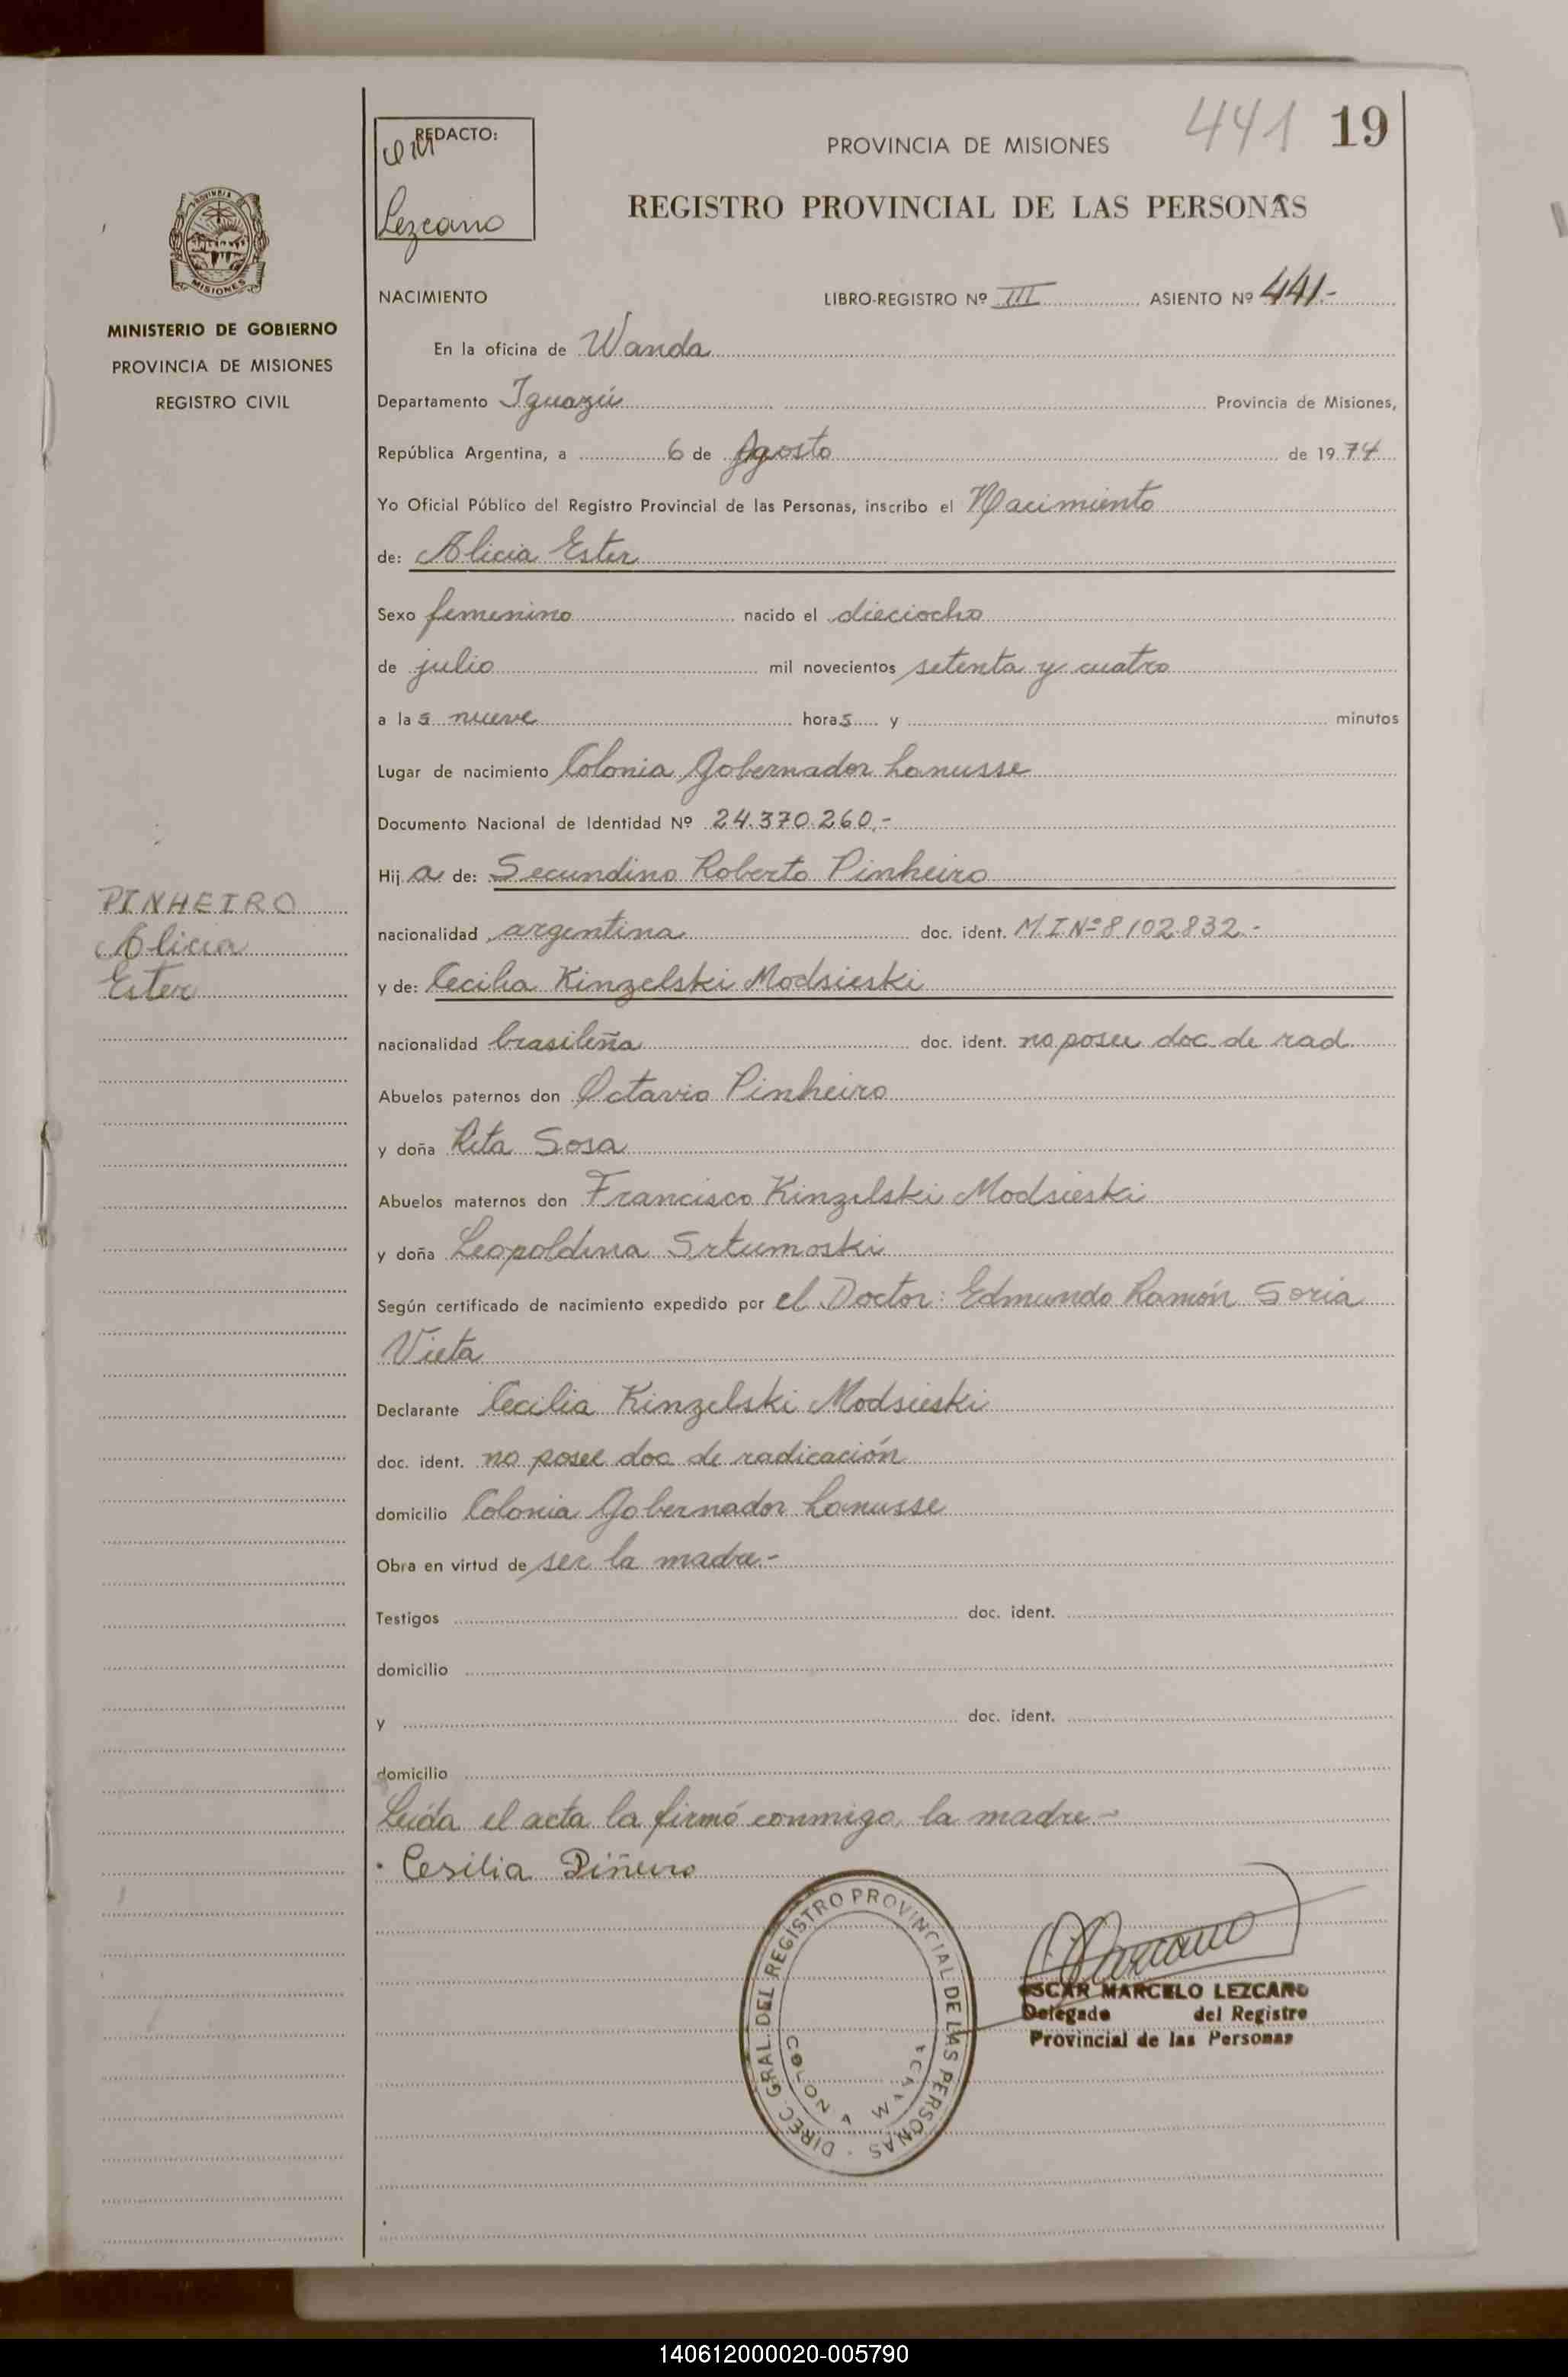 441 19
REDACTO:
Lezcano
PROVINCIA DE MISIONES
REGISTRO PROVINCIAL DE LAS PERSONAS
PROVINCIA
MISIONES
MINISTERIO DE GOBIERNO
PROVINCIA DE MISIONES
REGISTRO CIVIL
NACIMIENTO LIBRO-REGISTRO Nº III ASIENTO Nº 441.-
En la oficina de Wanda
Departamento Iguazú Provincia de Misiones,
República Argentina, a 6 de Agosto de 1974
Yo Oficial Público del Registro Provincial de las Personas, inscribo el Nacimiento
de: Alicia Ester
Sexo femenino nacido el dieciocho
de julio mil novecientos setenta y cuatro
a las nueve horas y minutos
Lugar de nacimiento Colonia Gobernador Lanusse
Documento Nacional de Identidad Nº 24.370.260.-
Hija de: Secundino Roberto Pinheiro
PINHEIRO
Alicia
Ester
nacionalidad argentina doc. ident. M.I.Nº 8102.832.-
y de: Cecilia Kinzelski Modsieski
nacionalidad brasileña doc. ident. no posee doc. de rad.
Abuelos paternos don Octavio Pinheiro
y doña Rita Sosa
Abuelos maternos don Francisco Kinzelski Modsieski
y doña Leopoldina Srtumoski
Según certificado de nacimiento expedido por el Doctor: Edmundo Ramón Soria
Vieta
Declarante Cecilia Kinzelski Modsieski
doc. ident. no posee doc de radicación
domicilio Colonia Gobernador Lanusse
Obra en virtud de ser la madre.-
Testigos doc. ident.
domicilio
y doc. ident.
domicilio
Leída el acta la firmó conmigo, la madre.-
Cesilia Piñeiro
DIREC. GRAL. DEL REGISTRO PROVINCIAL DE LAS PERSONAS
COLONIA WANDA
OSCAR MARCELO LEZCANO
Delegado del Registro
Provincial de las Personas
140612000020-005790